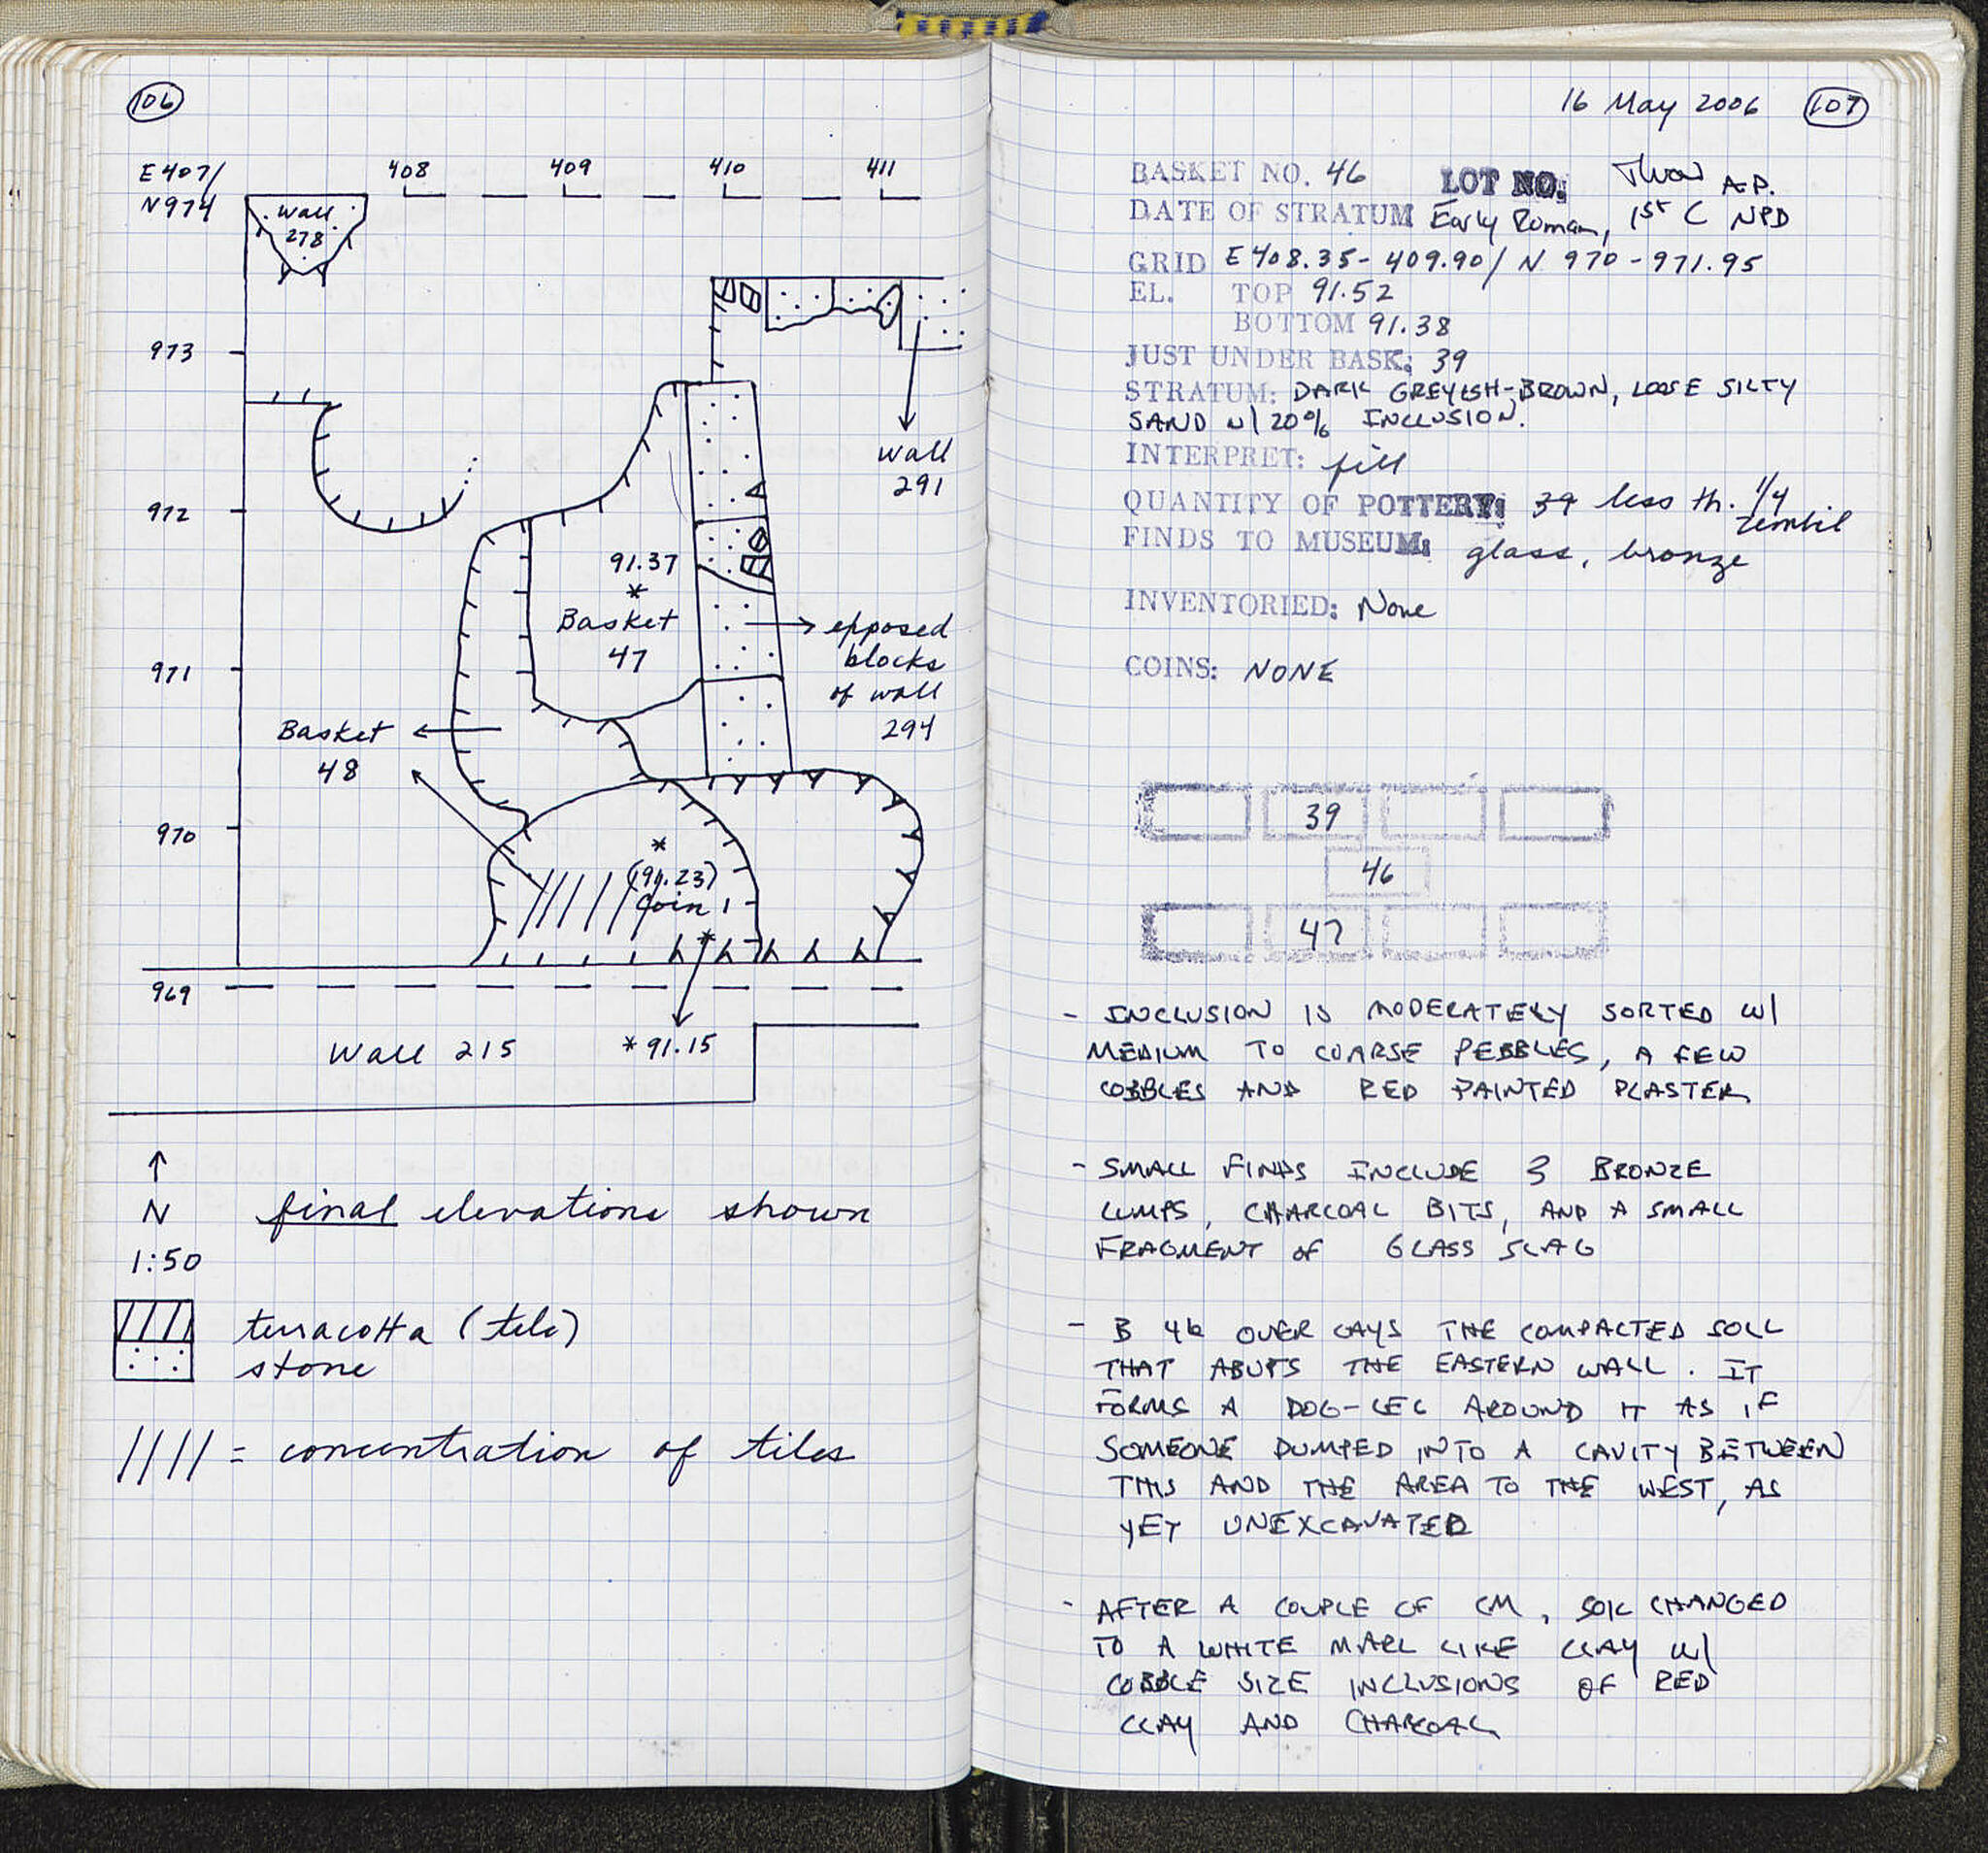 106
E 407/ 408 409 410 411
N 974
Wall
278
973
Wall
291
972
91.37
*
Basket
47
exposed
blocks
of wall
294
971
Basket
48
970
*
(91.23)
Coin 1
*
969
Wall 215 * 91.15
↑
N
final elevations shown
1:50
terracotta (tile)
stone
//// = concentration of tiles
16 May 2006 107
BASKET NO. 46 LOT NO. A.P.
DATE OF STRATUM Early Roman, 1st C NPD
GRID E 408.35 - 409.90 / N 970 - 971.95
EL. TOP 91.52
BOTTOM 91.38
JUST UNDER BASK: 39
STRATUM: DARK GREYISH-BROWN, LOOSE SILTY
SAND W/ 20% INCLUSION.
INTERPRET: fill
QUANTITY OF POTTERY: 39 less th. 1/4
zembil
FINDS TO MUSEUM: glass, bronze
INVENTORIED: None
COINS: NONE
39
46
47
- INCLUSION IS MODERATELY SORTED W/
MEDIUM TO COARSE PEBBLES, A FEW
COBBLES AND RED PAINTED PLASTER
- SMALL FINDS INCLUDE 3 BRONZE
LUMPS, CHARCOAL BITS, AND A SMALL
FRAGMENT OF GLASS SLAG
- B 46 OVER LAYS THE COMPACTED SOIL
THAT ABUTS THE EASTERN WALL. IT
FORMS A DOG-LEG AROUND IT AS IF
SOMEONE DUMPED INTO A CAVITY BETWEEN
THIS AND THE AREA TO THE WEST, AS
YET UNEXCAVATED
- AFTER A COUPLE OF CM, SOIL CHANGED
TO A WHITE MARL LIKE CLAY W/
COBBLE SIZE INCLUSIONS OF RED
CLAY AND CHARCOAL